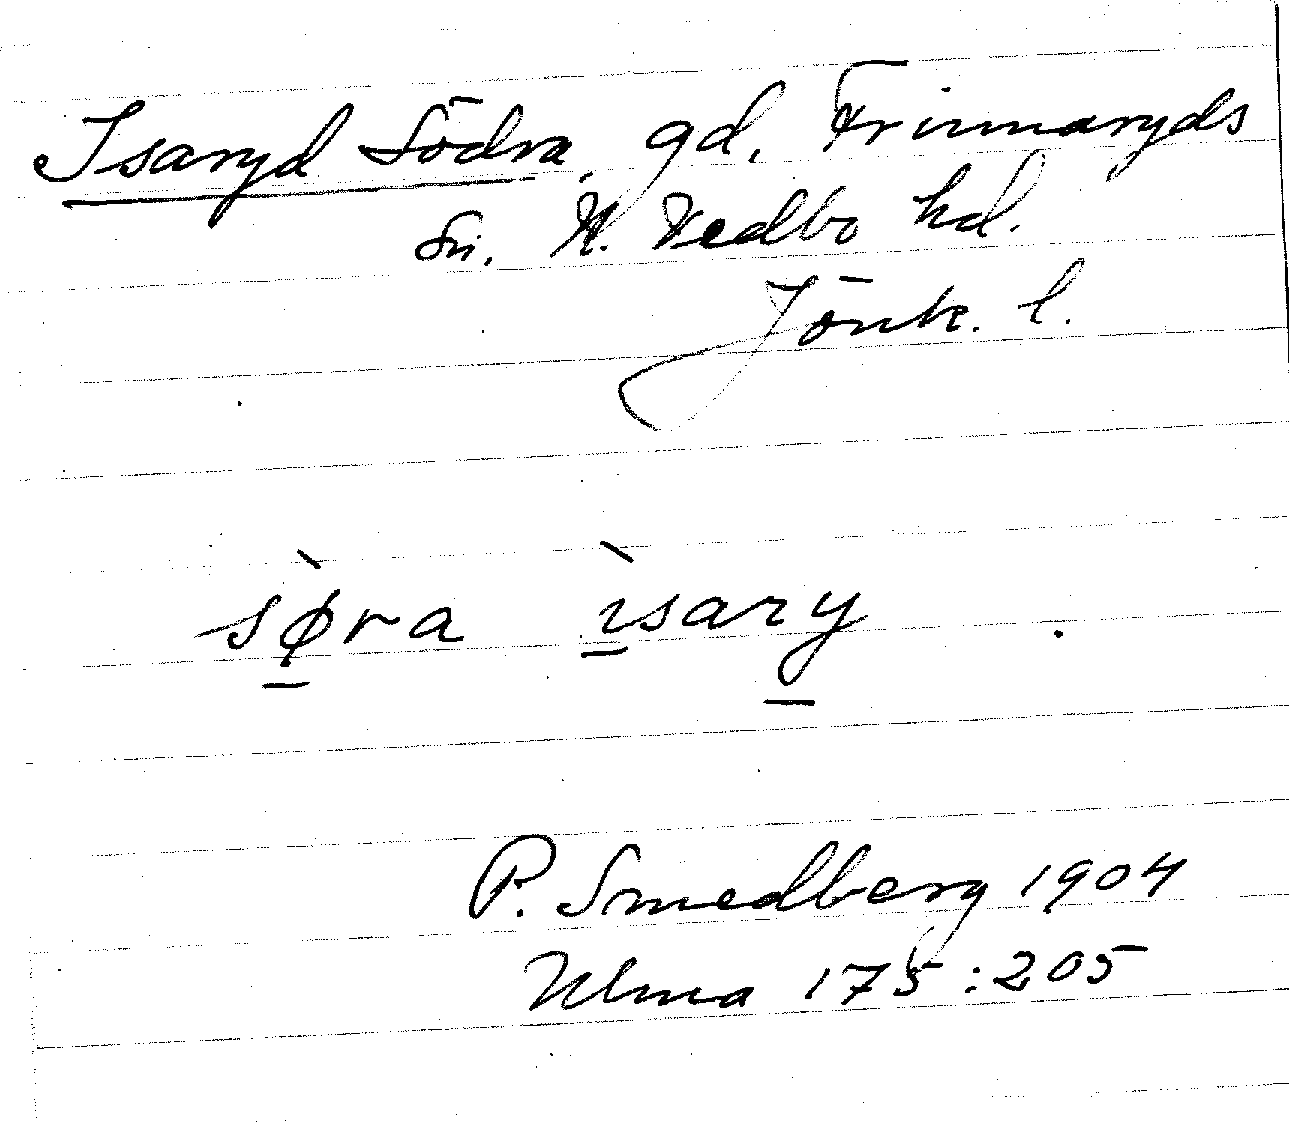 Isaryd Södra, gd, Frinnaryds
sn. N. Vedbo hd.
Jönk. l.
sø̠̀ra ı̠̀sary̠
P. Smedberg 1904
Ulma 175:205